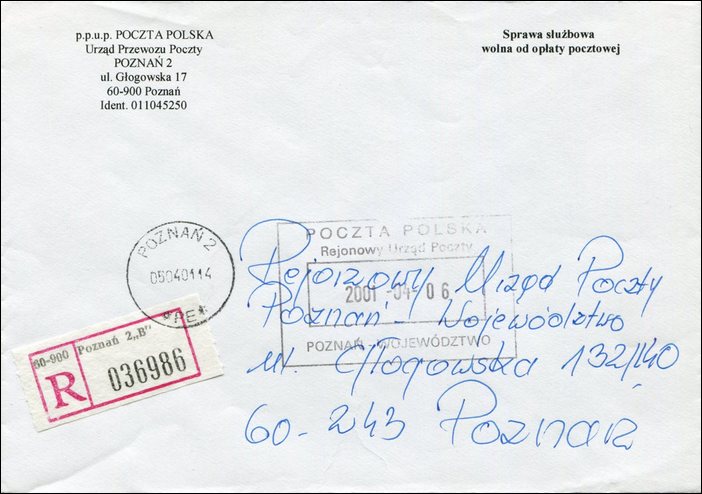 p.p.u.p. POCZTA POLSKA
Urząd Przewozu Poczty
POZNAŃ 2
ul. Głogowska 17
60-900 Poznań
Ident. 011045250
Sprawa służbowa
wolna od opłaty pocztowej
POZNAŃ 2
05040114
POCZTA POLSKA
Rejonowy Urząd Poczty
2001 -04- 06
POZNAŃ - WOJEWÓDZTWO
Rejonowy Urząd Poczty
Poznań - Województwo
ul. Głogowska 132/140
60-243 Poznań
60-900 Poznań 2„B"
R 036986